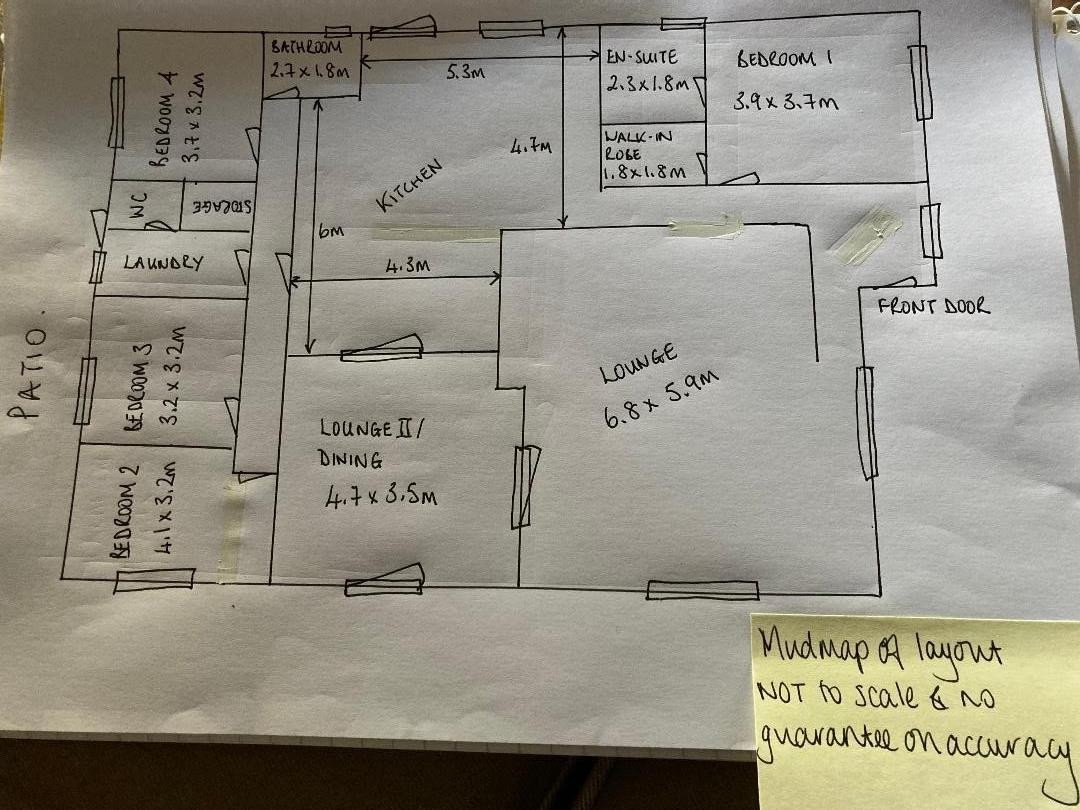 BATHROOM
2.7 x 1.8m
5.3m
EN-SUITE
2.3x1.8m
BEDROOM 1
3.9 x 3.7m
BEDROOM 4
3.7 x 3.2m
4.7m
WALK-IN
ROBE
1.8x1.8m
KITCHEN
WC
STORAGE
6m
LAUNDRY
4.3M
FRONT DOOR
PATIO.
BEDROOM 3
3.2 x 3.2m
LOUNGE
6.8 x 5.9m
LOUNGE II/
DINING
4.7 x 3.5m
BEDROOM 2
4.1 x 3.2m
Mudmap of layout
NOT to scale & no
guarantee on accuracy